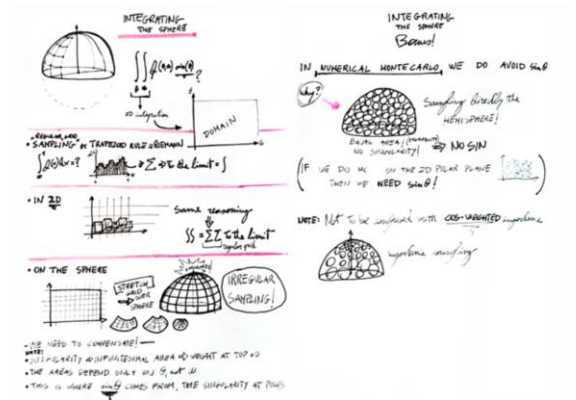 INTEGRATING
THE SPHERE
∬ f(θ,φ) sin(θ) ?
2D integration
DOMAIN
REGULAR
• SAMPLING TRAPEZOID RULE RIEMANN
∫ f(x)dx = ? Σ → to the limit = ∫
• IN 2D
Same reasoning
∬ = ΣΣ to the limit
regular grid
• ON THE SPHERE
STRETCH
GRID
OVER
SPHERE
IRREGULAR
SAMPLING!
WE NEED TO COMPENSATE!
NOTE:
• SINGULARITY INFINITESIMAL AREA ⇒ WEIGHT AT TOP = 0
• THE AREAS DEPEND ONLY ON θ, not
• THIS IS WHERE sinθ COMES FROM, THE SINGULARITY AT POLES
INTEGRATING
THE SPHERE
Bonus!
IN NUMERICAL MONTECARLO, WE DO AVOID sinθ
Why?
Sampling directly the
HEMISPHERE!
EQUAL AREA!
NO SINGULARITY! ⇒ NO SIN
(IF WE DO MC ON THE 2D POLAR PLANE
THEN WE NEED sinθ!)
NOTE: Not to be confused with COS-WEIGHTED importance
importance sampling